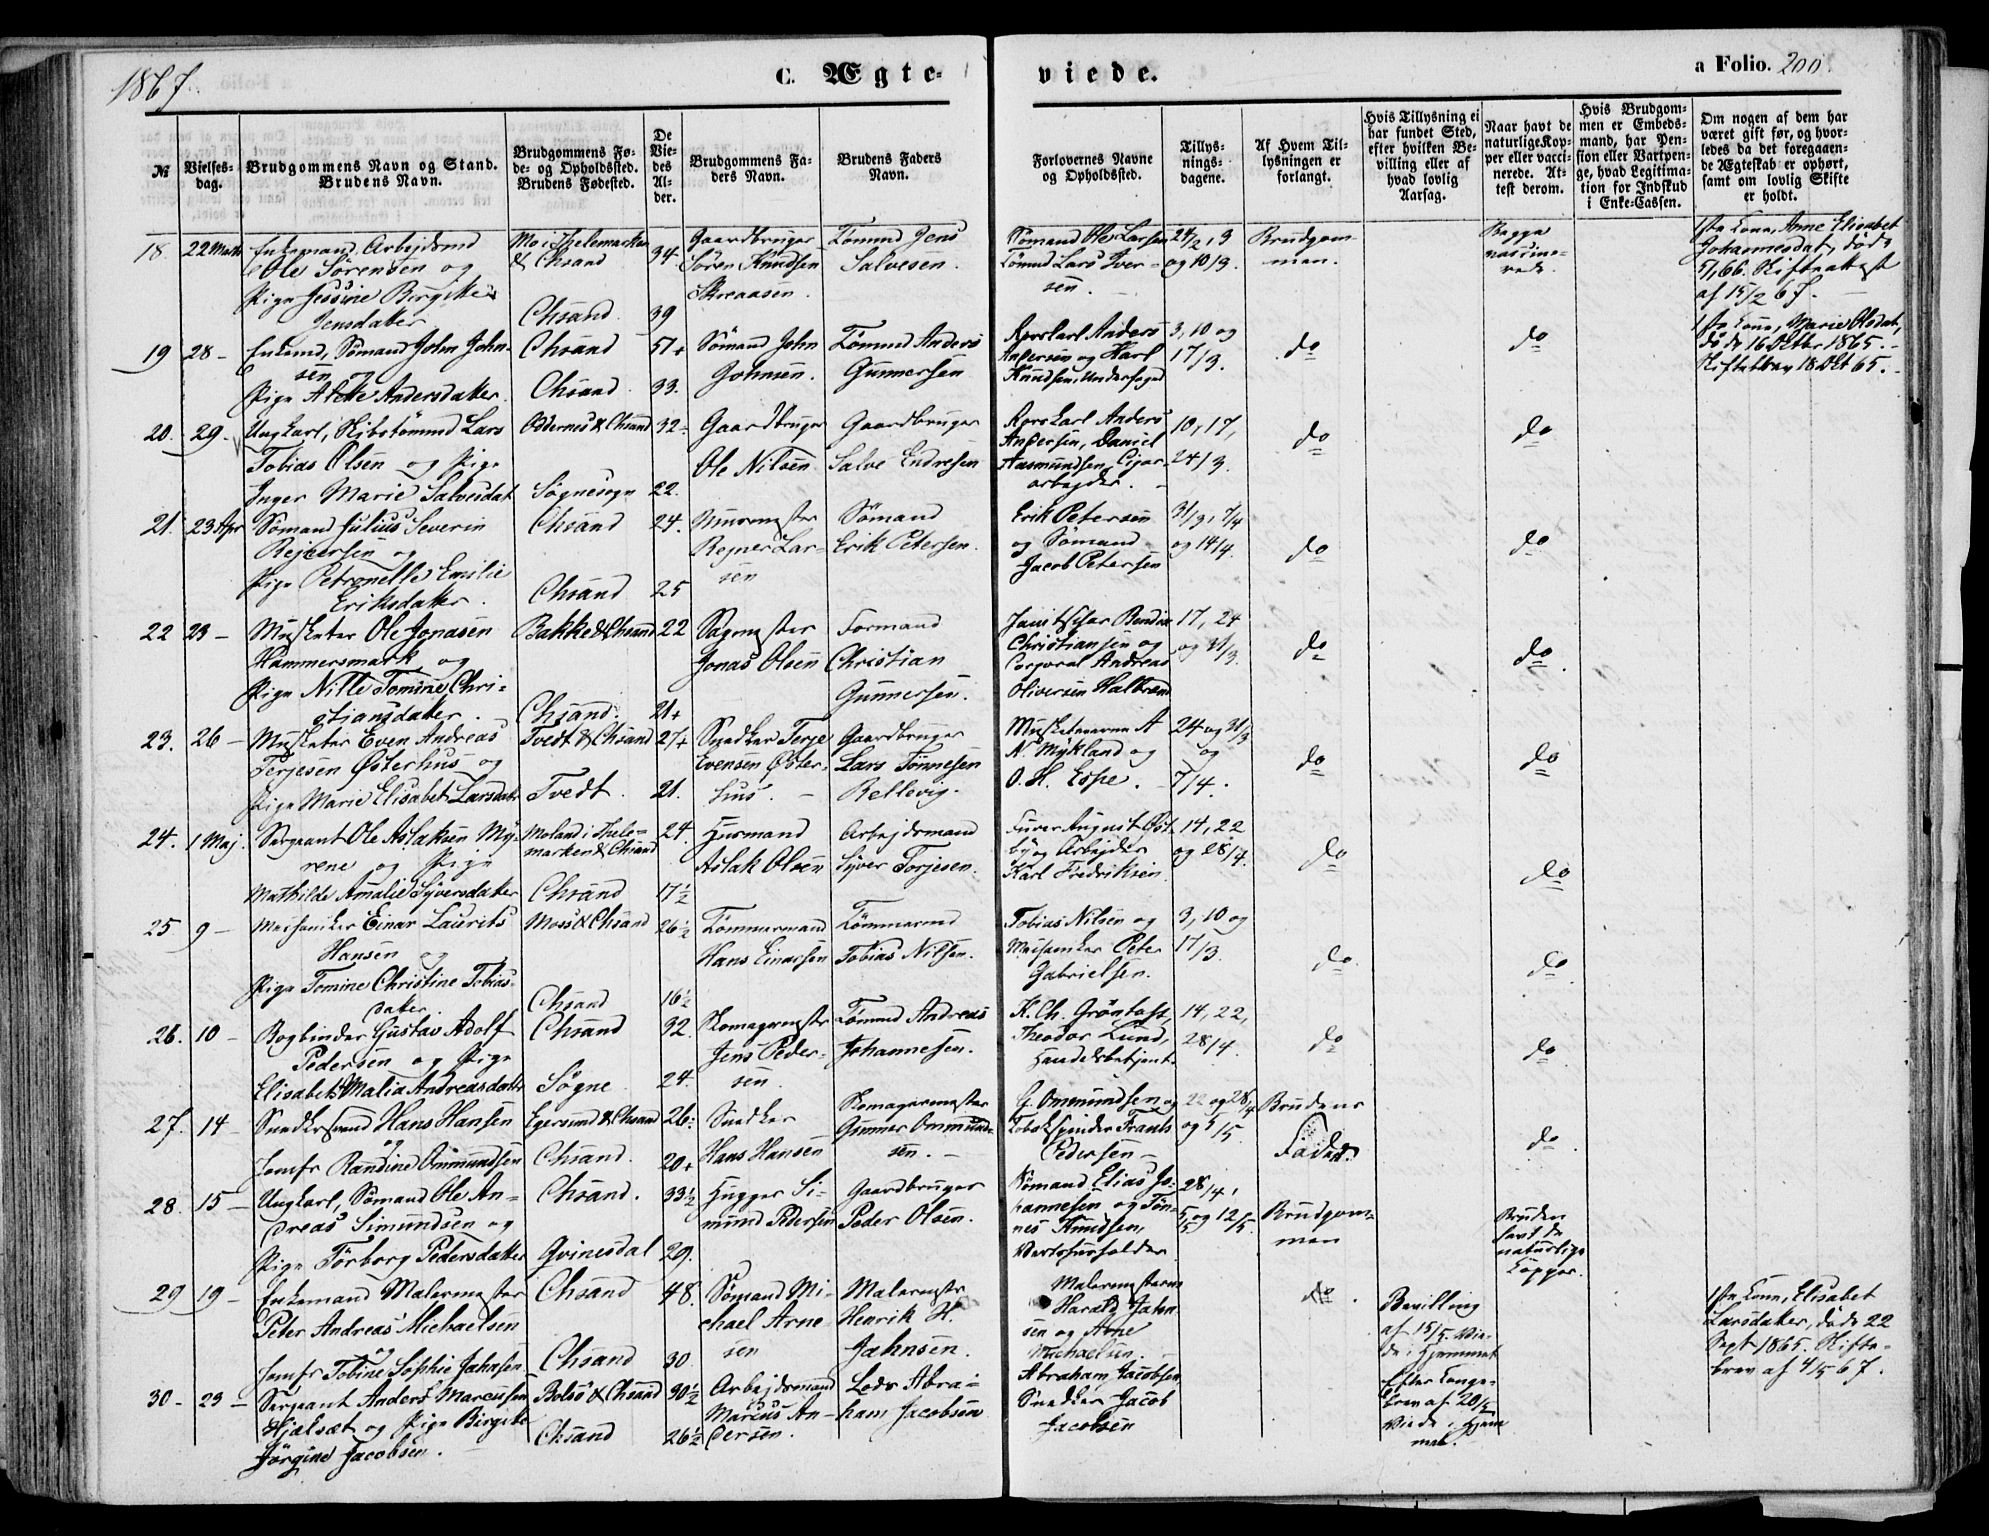 1867.
C. Ægteviede.
a Folio. 200
№
Vielsesdag.
Brudgommens Navn og Stand.
Brudens Navn.
Brudgommens Føde- og Opholdssted.
Brudens Fødested.
De Viedes Alder.
Brudgommens Faders Navn.
Brudens Faders Navn.
Forlovernes Navne og Opholdssted.
Tillysningsdagene.
Af Hvem Tillysningen er forlangt.
Hvis Tillysning ei har fundet Sted, efter hvilken Bevilling eller af hvad lovlig Aarsag.
Naar havt de naturlige Kopper eller vaccinerede. Attest derom.
Hvis Brudgommen er Embedsmand, har Pension eller Vartpenge, hvad Legitimation for Indskud i Enke-Cassen.
Om nogen af dem har været gift før, og hvorledes da det foregaaende Ægteskab er ophørt, samt om lovlig Skifte er holdt.
18. 22 Marts Enkemand Arbejdsmd Mo i Thelemarken & Chsand 34 Gaardbruger Tømmd Jens Sømand Ole Larsen 24/2, 3 Brudgom- Begge 1ste Kone, Anne Elisabet
Ole Sørensen og Søren Knudsen Salvesen. Tømmd Lars Iver- og 10/3. men. vaccine- Johannesdat, døde
Pige Jessine Birgitte Skreaasen. sen. rede. 5/1 66. Skifteattest
Jensdatter Chsand. 39 af 15/2 67.
19 28 - Enkemd, Sømand John John- Chsand 51+ Sømand John Tømmd Anders Anders 3, 10 og do do 1ste Kone, Marie Olsdat,
sen og Johnsen. Gunnersen Andersen og Karl 17/3. døde 16 Octbr 1865.
Pige Andersdatter. Chsand. 33. Knudsen, Skiftebrev 18 Oct 65.
20. 29. Ungkarl, Skibstømmd Lars Oddernes & Chsand 32 Gaardbruger Gaardbruger Anders 10, 17, do do
Tobias Olsen og Pige Ole Nilsen Salve Endresen Andersen, Daniel 24/3.
Inger Marie Salvesdat Søgnesogn 22. Aasmundsen, Cigar-
arbejder.
21. 23 Apr Sømand Julius Severin Chsand 24. Murmester Sømand Erik Petersen 31/3, 7/4 do do
Rejnersen og Rejner Lar- Erik Petersen. og Sømand og 14/4.
Pige Petronelle Emilie Chsand 25 sen Jacob Petersen
Eriksdatter.
22 23 - Musketer Ole Jonasen Bakke & Chsand 22 Sagmester Formand Janitschar 17, 24 do do
Hammersmark og Jonas Olsen Christian Christiansen og og 31/3.
Pige Nille Tomine Chri- Gunnersen. Corporal Andreas
stjansdatter. Chsand. 21+ Oliversen
23. 26 - Musketer Even Andreas Tvedt & Chsand 27+ Snedker Terje Gaardbruger Musketererne A 24 og 31/3 do do
Terjesen Østerhus og Evensen Øster- Lars Tønnesen N. Mykland og og
Pige Marie Elisabet Larsdatr Tvedt. 21. hus. Rellevig. O. H. Espe. 7/4.
24. 1 Maj. Sergeant Ole Aslaksen My- Moland i Thele- 24. Husmand Arbejdsmand Furer August Øst- 14, 22 do do
rene og Pige marken & Chsand Aslak Olsen Syver Torjesen. by og Arbejder og 28/4.
Mathilde Amalie Syversdatter Chsand 17½ Karl Fredriksen
25 9 - Maskinker Einar Laurits Moss & Chsand 26½ Tømmermand Tømmermd Tobias Nilsen og 3, 10 og do do
Hansen og Hans Einarsen Tobias Nilsen. Peter 17/3
Pige Tomine Christine Tobias- Chsand 16½ Gabrielsen.
datter.
26. 10 - Bogbinder Gustav Adolf Chsand 32. Skomagermester Tømmd Andreas K. Ch. Grøntoft, 14, 22, do do
Pedersen og Pige Jens Peder- Johannesen. Theodor Lund, 28/4.
Elisabet Malia Andreasdatter Søgne 24. sen. Handelsbetjent.
27. 14 - Snedkersvend Hans Hansen Egersund & Chsand 26. Snedker Skomagermester G. Ommundsen og 22 og 28/4 Brudens do
og Gunner Ommund- Tobakspinder Frants og 5/5. Fader.
Jomfr Randine Ommundsen Chsand. 20+ Hans Hansen sen. Pedersen
28. 15 - Ungkarl, Sømand Ole An- Chsand. 33½ Hugger Si- Gaardbruger Sømand Elias Jo- 28/4, Brudgom- Bruden
dreas Simundsen og mund Pedersen Peder Olsen. hannesen og Tøn- 5/5 og 12/5. men havt de
Pige Tørborg Pedersdatter Qvinesdal 29. nes Knudsen, naturlige
Vertshusholder Kopper.
29 19 - Enkemand Malermester Chsand 48. Sømand Mi- Malermester Malermesterne do. Bevilling 1ste Kone, Elisabet
Peter Andreas Michaelsen chael Arne- Henrik H. Harald Jahn- af 15/5. Vie- Larsdatter, døde 22
og sen Jahnsen. sen og Arne de i Hjemmet Sept 1865. Skifte-
Jomfr Tobine Sophie Jahnsen Chsand 30. Michaelsen. brev af 4/5 67.
30 - 23 - Sergeant Anders Marcusen Bolsø & Chsand 30½ Arbejdsmand Lods Abra- Abraham Jacobsen, Efter Konge-
Hjelsæt og Pige Birgitte Marcus An- ham Jacobsen Snedker Jacob brev af 20/5
Jørgine Jacobsen. Chsand 26½ dersen. Jacobsen Viede i Hjem-
met.